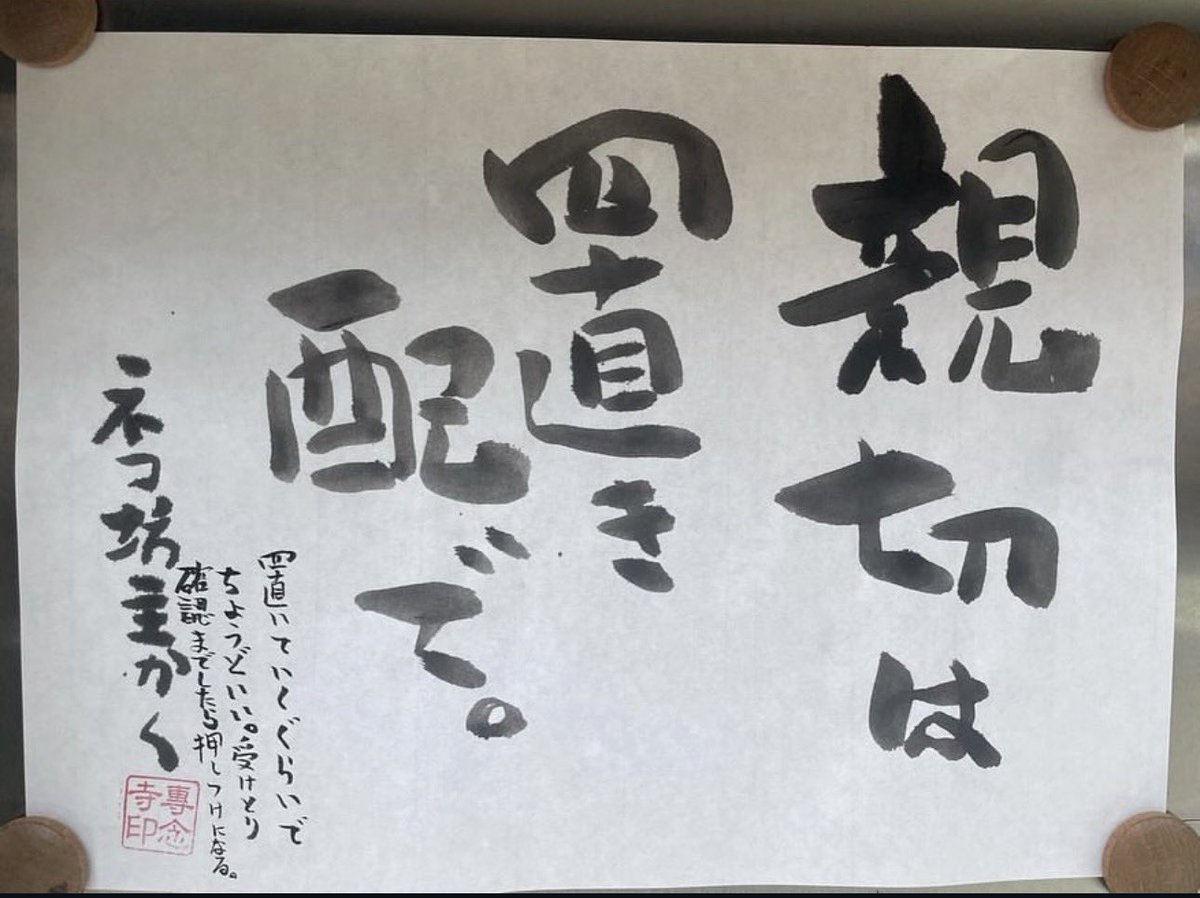 親切は
置き
配で。
置いていくぐらいで
ちょうどいい。受けとり
確認までしたら押しつけになる。
ネコ坊主かく
専念
寺印